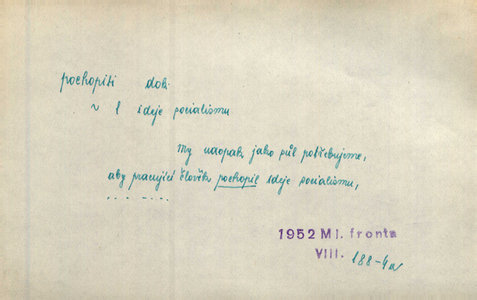 pochopiti dok.
ideje socialismu
My naopak jako sůl potřebujeme,
aby pracující člověk pochopil ideje socialismu,
. . . – . .
1952 Ml. fronta
VIII. 188-4